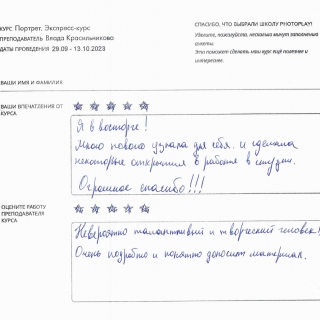 КУРС Портрет. Экспресс-курс
ПРЕПОДАВАТЕЛЬ Влада Красильникова
ДАТЫ ПРОВЕДЕНИЯ 29.09 - 13.10.2023
СПАСИБО, ЧТО ВЫБРАЛИ ШКОЛУ PHOTOPLAY!
Уделите, пожалуйста, несколько минут заполнению
анкеты.
Это поможет сделать наш курс ещё полезнее и
интереснее.
ВАШИ ИМЯ И ФАМИЛИЯ
ВАШИ ВПЕЧАТЛЕНИЯ ОТ
КУРСА
Я в восторге!
Много нового узнала для себя и сделала
некоторые открытия в работе в студии.
Огромное спасибо!!!
ОЦЕНИТЕ РАБОТУ
ПРЕПОДАВАТЕЛЯ
КУРСА
Невероятно талантливый и творческий человек!
Очень подробно и понятно доносит материал.